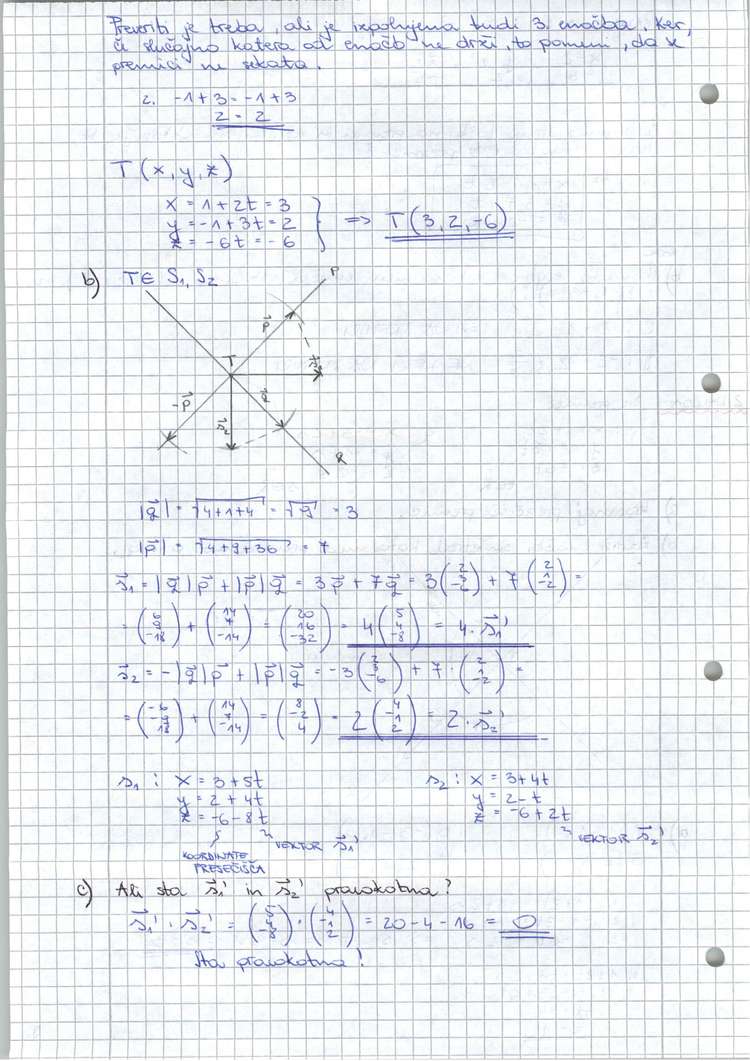 Preveriti je treba, ali je izpolnjena tudi 3. enačba. Ker,
či slučajno katera od enačb ne drži, to pomeni, da se
premici ne sekata.
2. -1+3 = -1+3
2 = 2
T(x,y,z)
x = 1+2t = 3
y = -1+3t = 2
z = -6t = -6
=> T(3,2,-6)
b) T ∈ S₁, S₂
P
p⃗
T
s⃗₁
-p⃗
q⃗
s⃗₂
|q⃗| = √(4+1+4) = √9 = 3
|p⃗| = √(4+9+36) = 7
s⃗₁ = |q⃗|p⃗ + |p⃗|q⃗ = 3p⃗ + 7q⃗ = 3(2 3 -6) + 7(2 1 -2) =
= (6 9 -18) + (14 7 -14) = (20 16 -32) = 4(5 4 -8) = 4·s⃗₁'
s⃗₂ = -|q⃗|p⃗ + |p⃗|q⃗ = -3(2 3 -6) + 7·(2 1 -2) =
= (-6 -9 18) + (14 7 -14) = (8 -2 4) = 2(4 -1 2) = 2·s⃗₂'
s₁ : x = 3+5t
y = 2+4t
z = -6-8t
KOORDINATE
PRESEČIŠČA
VEKTOR s⃗₁'
s₂ : x = 3+4t
y = 2-t
z = -6+2t
VEKTOR s⃗₂'
c) Ali sta s⃗₁' in s⃗₂' pravokotna?
s⃗₁' · s⃗₂' = (5 4 -8)·(4 -1 2) = 20-4-16 = 0
Sta pravokotna!